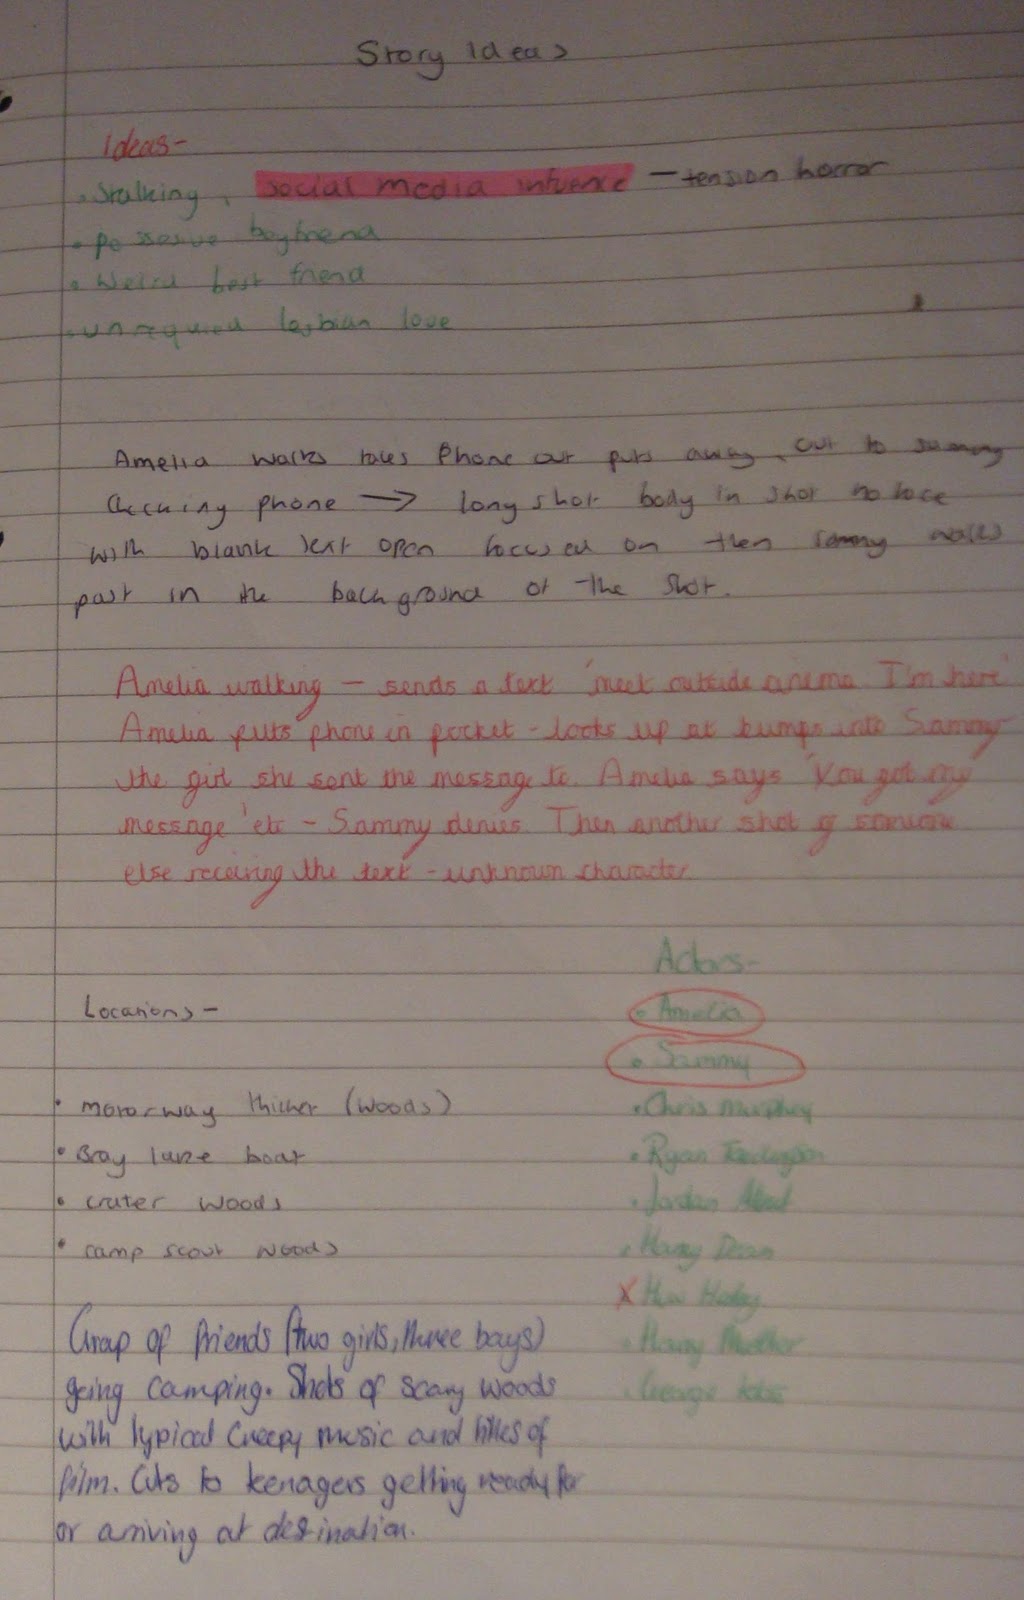 Story Ideas
Ideas-
• Stalking, social media infuence - tension horror
• possesive boyfriend
• Weird best friend
• unrequied lesbian love
Amelia walks takes Phone out puts away, cut to sammy
Checking phone → long shot body in shot no face
with blank text open focused on then sammy walks
past in the background of the shot.
Amelia walking - sends a text 'meet outside cinema I'm here'
Amelia puts phone in pocket - looks up at bumps into Sammy
the girl she sent the message to. Amelia says 'You got my
message' etc - Sammy denies. Then another shot of someone
else receiving the text - unknown character.
Actors-
• Amelia
• Sammy
• Chris Murphy
• Ryan
• Jordan
• Harry Dean
X
• Harry
• George
Locations -
• motorway thicket (woods)
• Bray lake boat
• crater woods
• camp scout woods
Group of friends (two girls, three boys)
going camping. Shots of scary woods
with typical creepy music and titles of
film. Cuts to teenagers getting ready for
or arriving at desination.